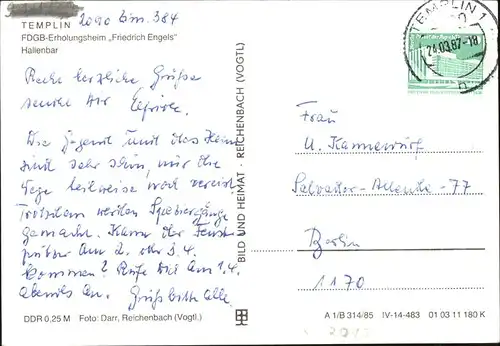 TEMPLIN 2090 Zim. 384
FDGB-Erholungsheim „Friedrich Engels"
Hallenbar
Recht herzliche Grüße
sendet Dir
Die Gegend und das Heim
sind sehr schön, nur die
Wege teilweise noch vereist
Trotzdem werden Spaziergänge
gemacht. Kann der
am 2. oder 3.4.
kommen? Rufe Dich am 1.4.
abends an. Grüß bitte alle.
DDR 0,25 M Foto: Darr, Reichenbach (Vogtl.)
BILD UND HEIMAT · REICHENBACH (VOGTL)
TEMPLIN 1
24.03.87-18
Frau
U. Kannewurf
Salvador-Allende-77
Berlin
1170
A 1/B 314/85 IV-14-483 01 03 11 180 K